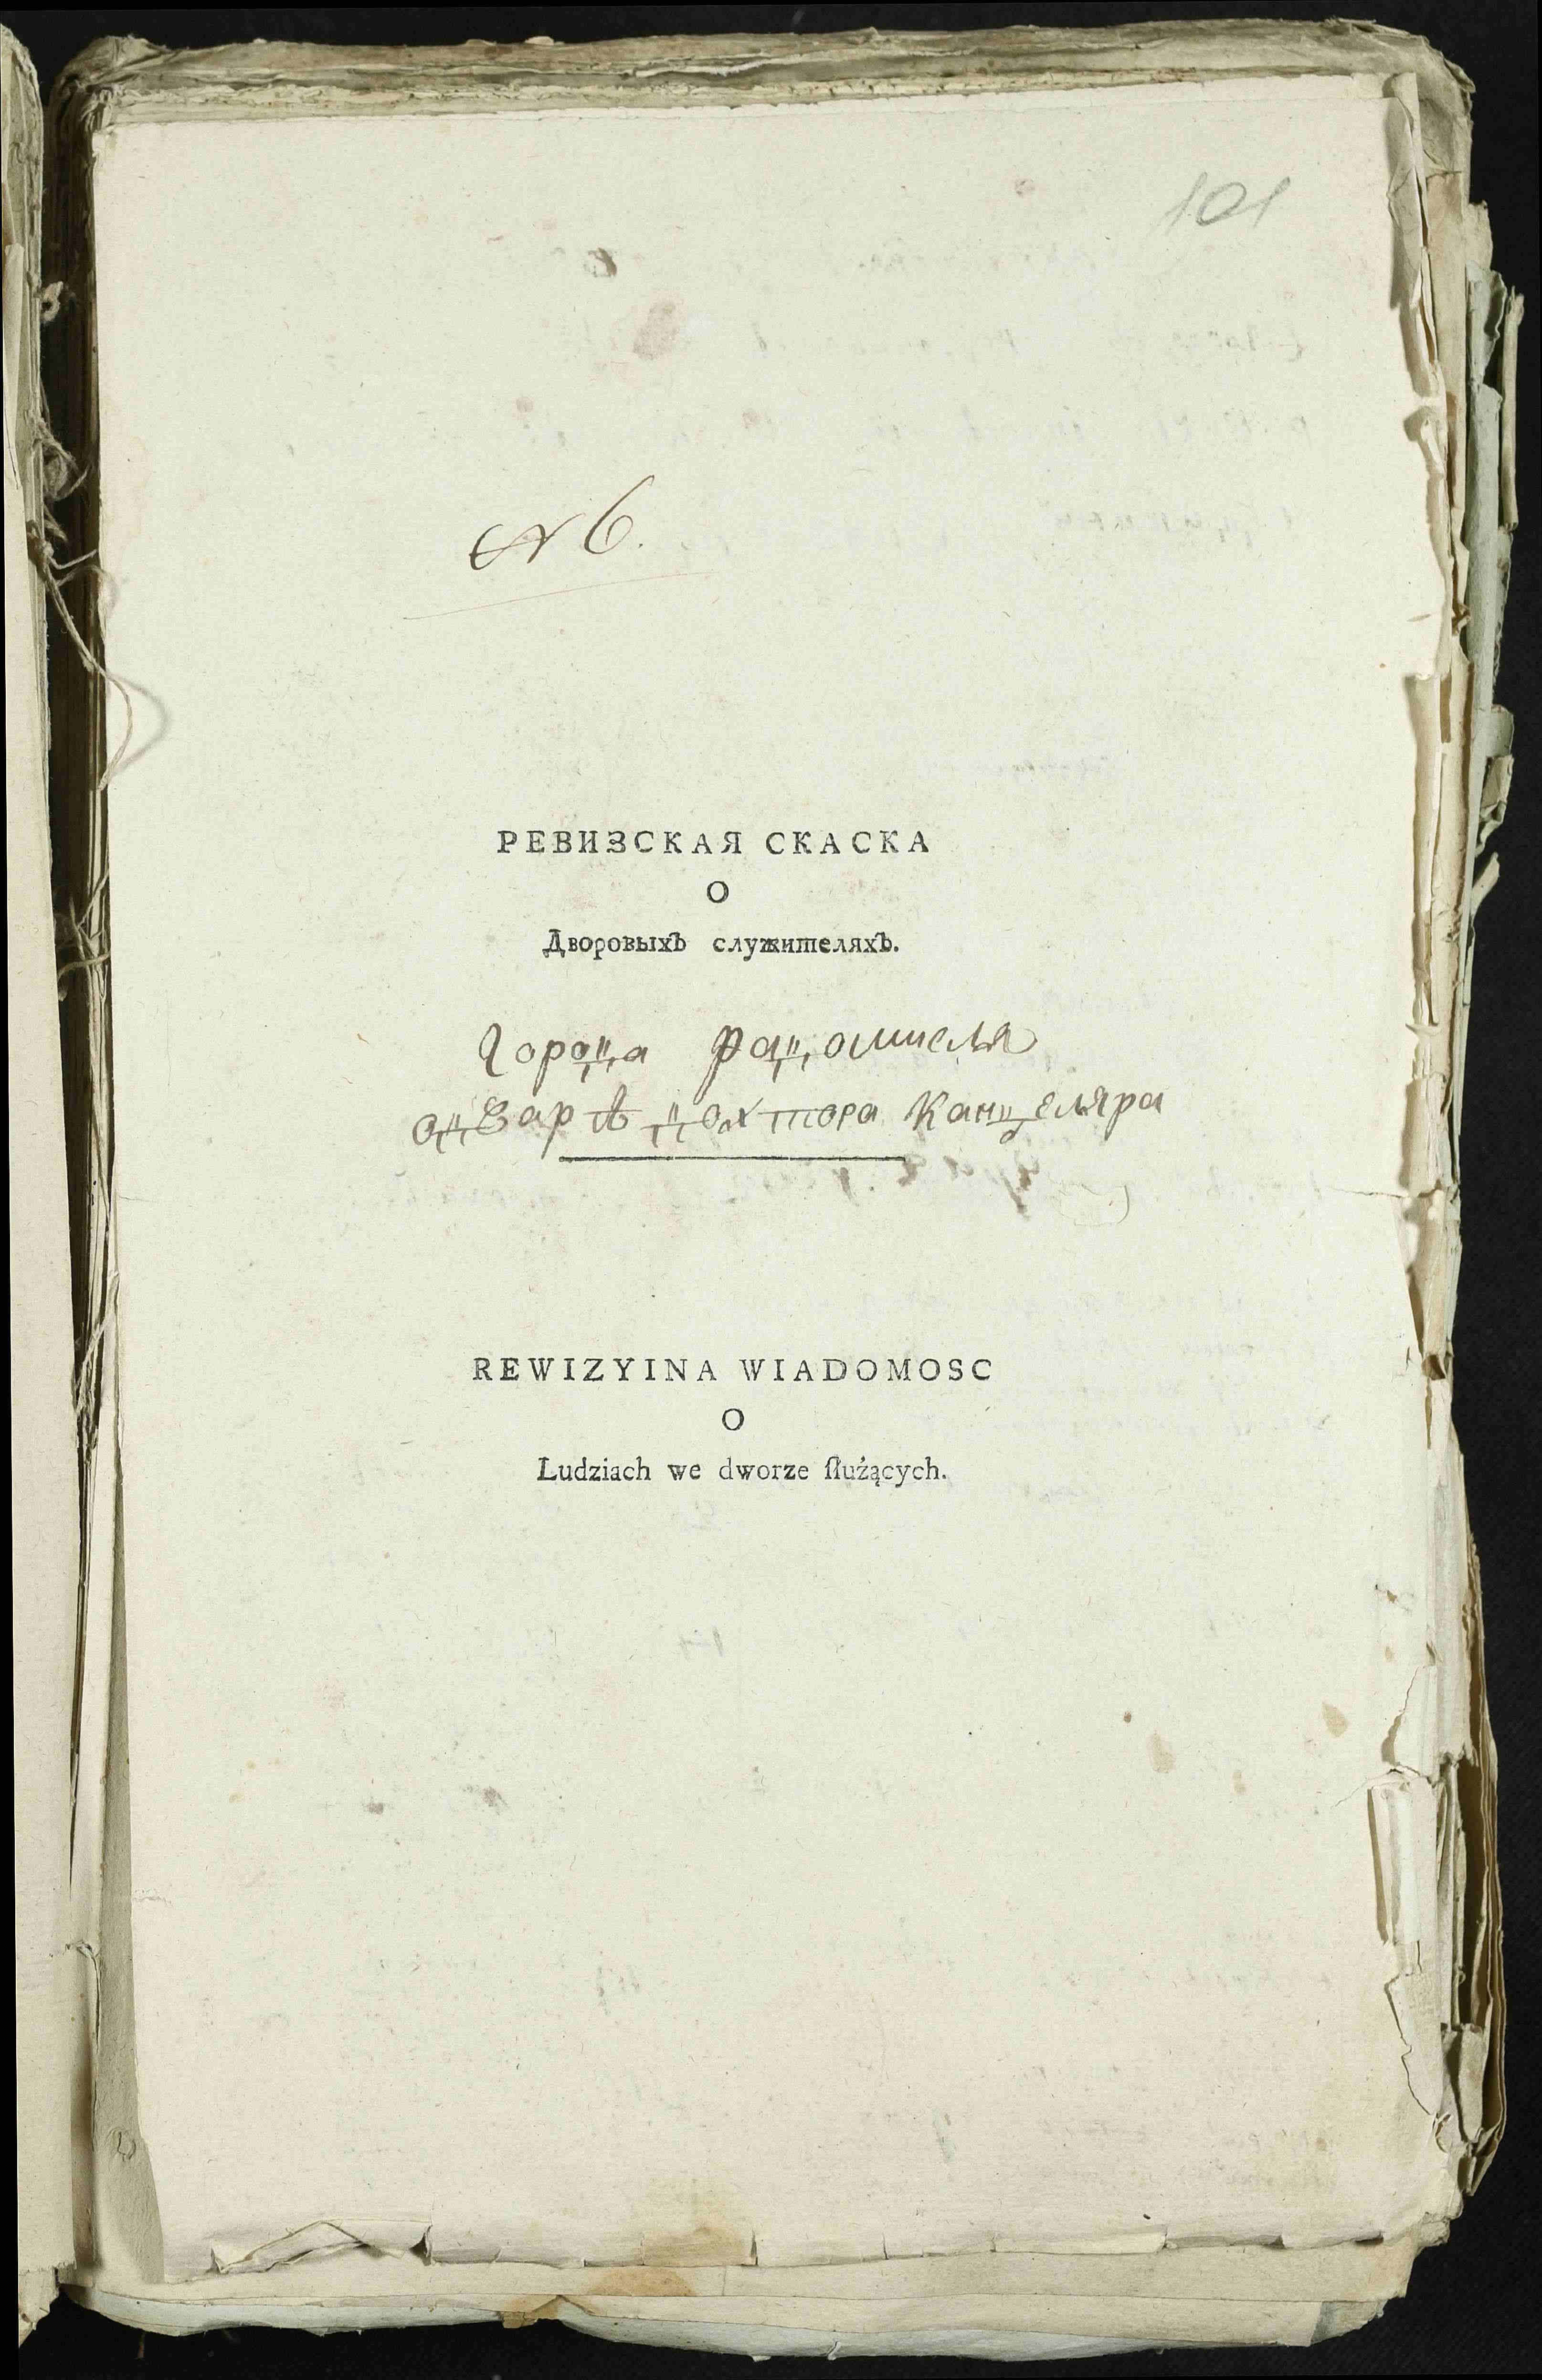 101
№ 6.
РЕВИЗСКАЯ СКАСКА
О
Дворовыхъ служителяхъ.
Города Радомисля
одваръ доктора Канцеляра
REWIZYINA WIADOMOSC
O
Ludziach we dworze ſłużących.